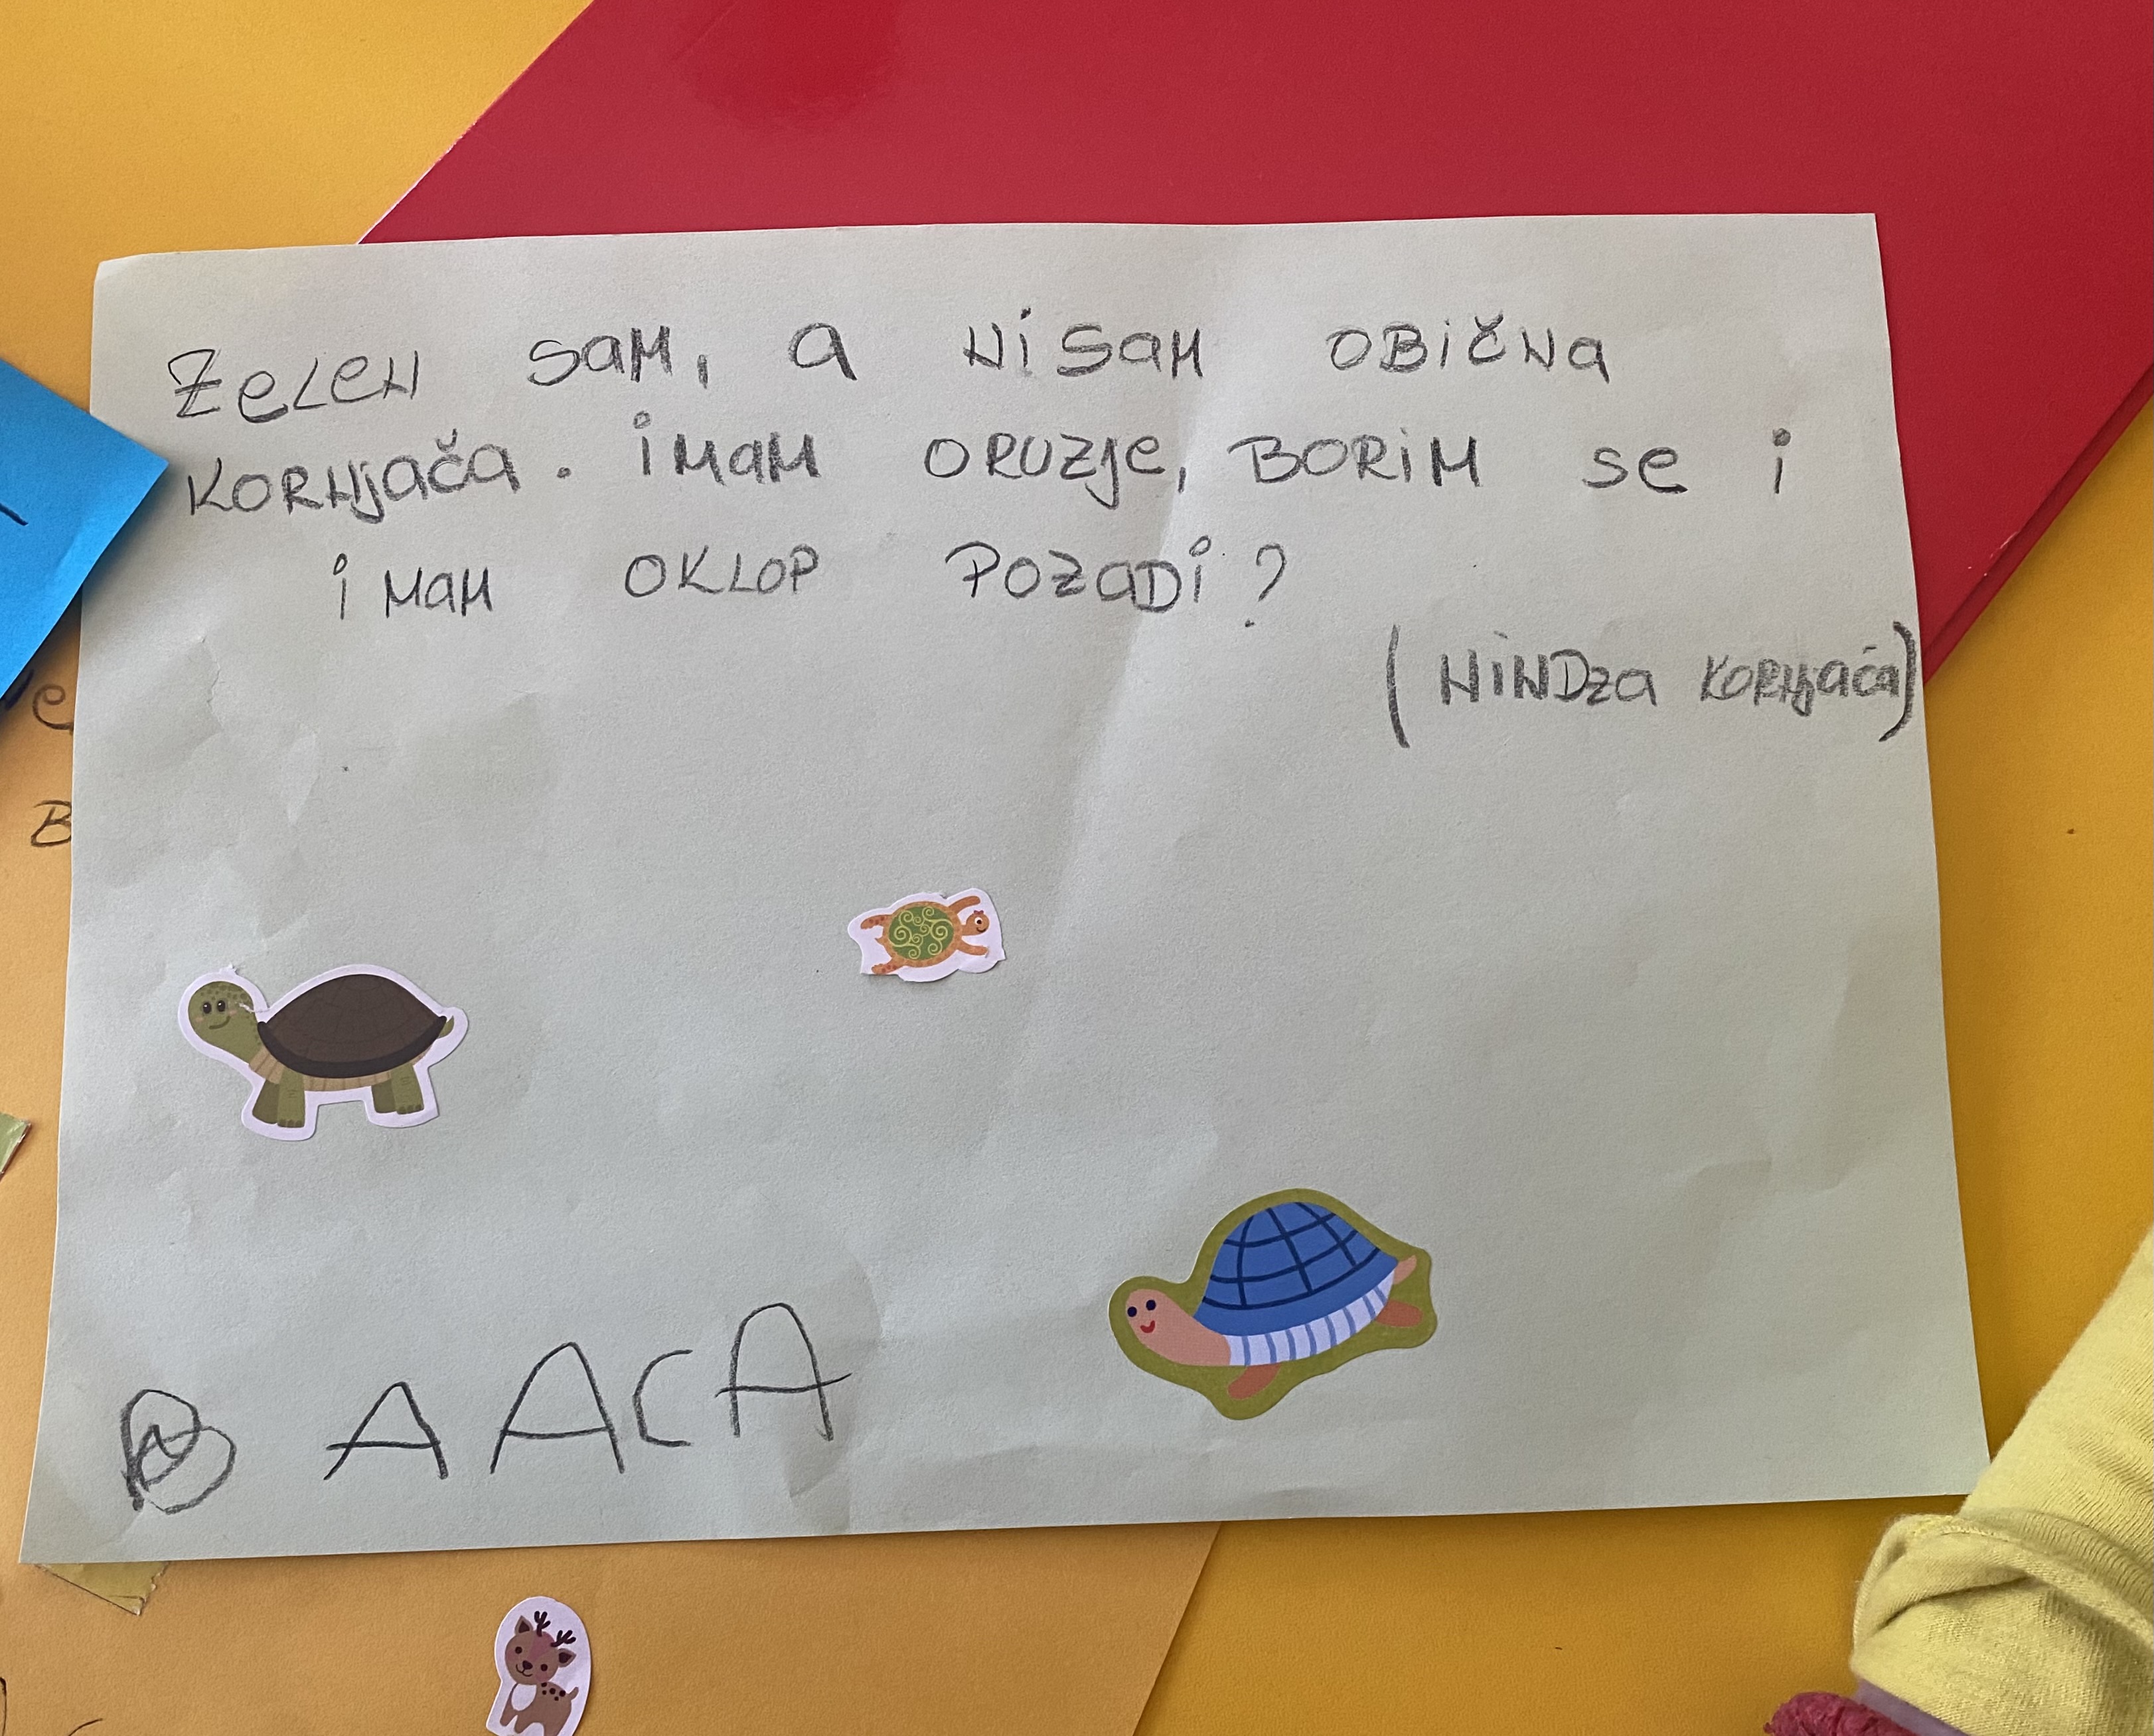 Zelen sam, a nisam obična
kornjača. imam oruzje, borim se i
imam oklop pozadi?
(Nindza kornjača)
AACA